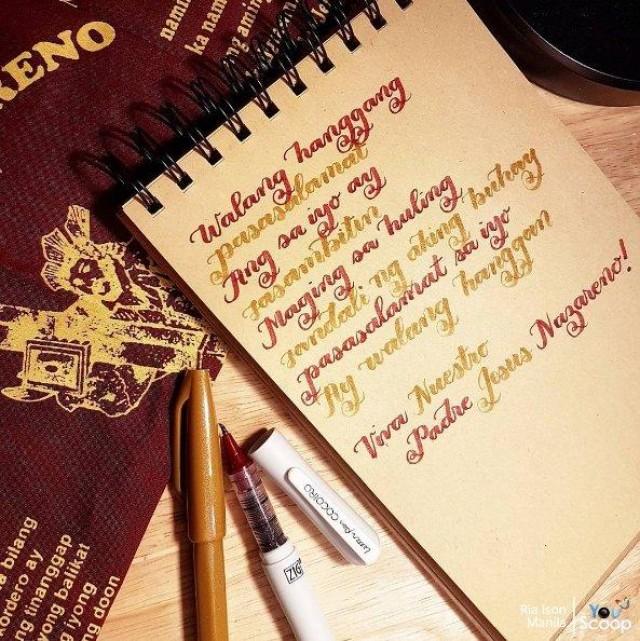 RENO
nami
ka nam
ng aming
Walang hanggang
pasasalamat
Ang sa iyo ay
sasambitin
Maging sa huling
sandali ng aking buhay
pasasalamat sa iyo
Ay walang hanggan
Viva Nuestro
Padre Jesus Nazareno!
a bilang
ordero ay
ng tinanggap
yong balikat
iyong
ng doon
Letter pen COCOIRO
ZIG
Ria Ison
Manila
YOU
Scoop